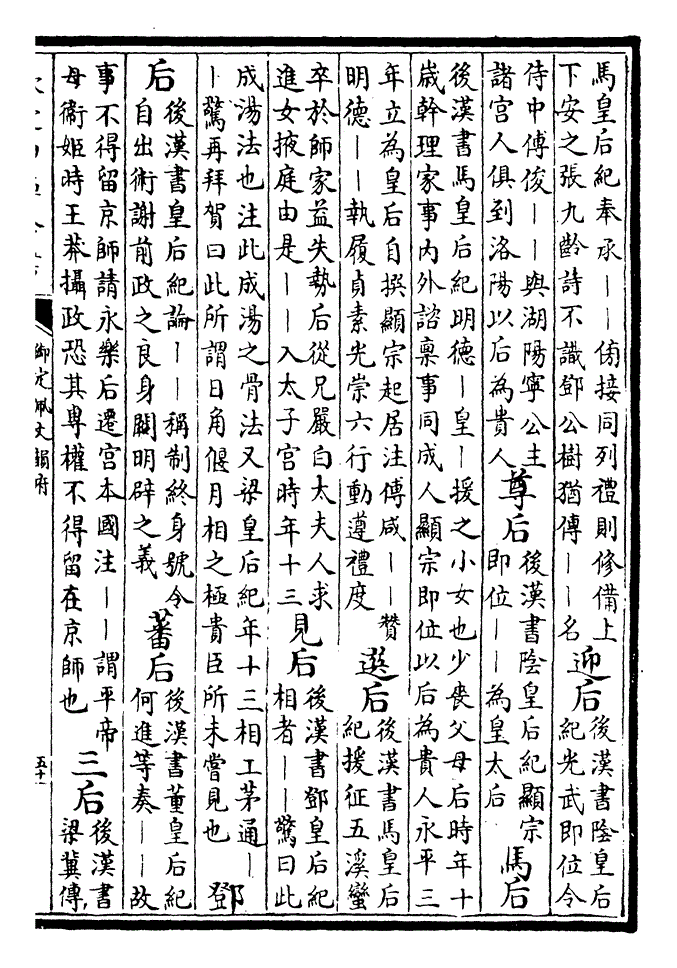 馬皇后紀奉承——傍接同列禮則修備上
下安之張九齡詩不識鄧公樹猶傳——名
迎后
後漢書陰皇后
紀光武即位令
侍中傅俊——與湖陽寧公主
諸宫人俱到洛陽以后為貴人
尊后
後漢書陰皇后紀顯宗
即位——為皇太后
馬后
後漢書馬皇后紀明德—皇—援之小女也少喪父母后時年十
歳幹理家事内外諮禀事同成人顯宗即位以后為貴人永平三
年立為皇后自撰顯宗起居注傅咸——贊
明德——執履貞素光崇六行動遵禮度
選后
後漢書馬皇后
紀援征五溪蠻
卒於師家益失勢后從兄嚴白太夫人求
進女掖庭由是——入太子宫時年十三
見后
後漢書鄧皇后紀
相者——驚曰此
成湯法也注此成湯之骨法又梁皇后紀年十三相工茅通—
—驚再拜賀曰此所謂日角偃月相之極貴臣所未嘗見也
鄧
后
後漢書皇后紀論——稱制終身號令
自出術謝前政之良身闕明辟之義
蕃后
後漢書董皇后紀
何進等奏——故
事不得留京師請永樂后遷宫本國注——謂平帝
母衞姬時王莽攝政恐其專權不得留在京師也
三后
後漢書
梁冀傳
御定佩文韻府